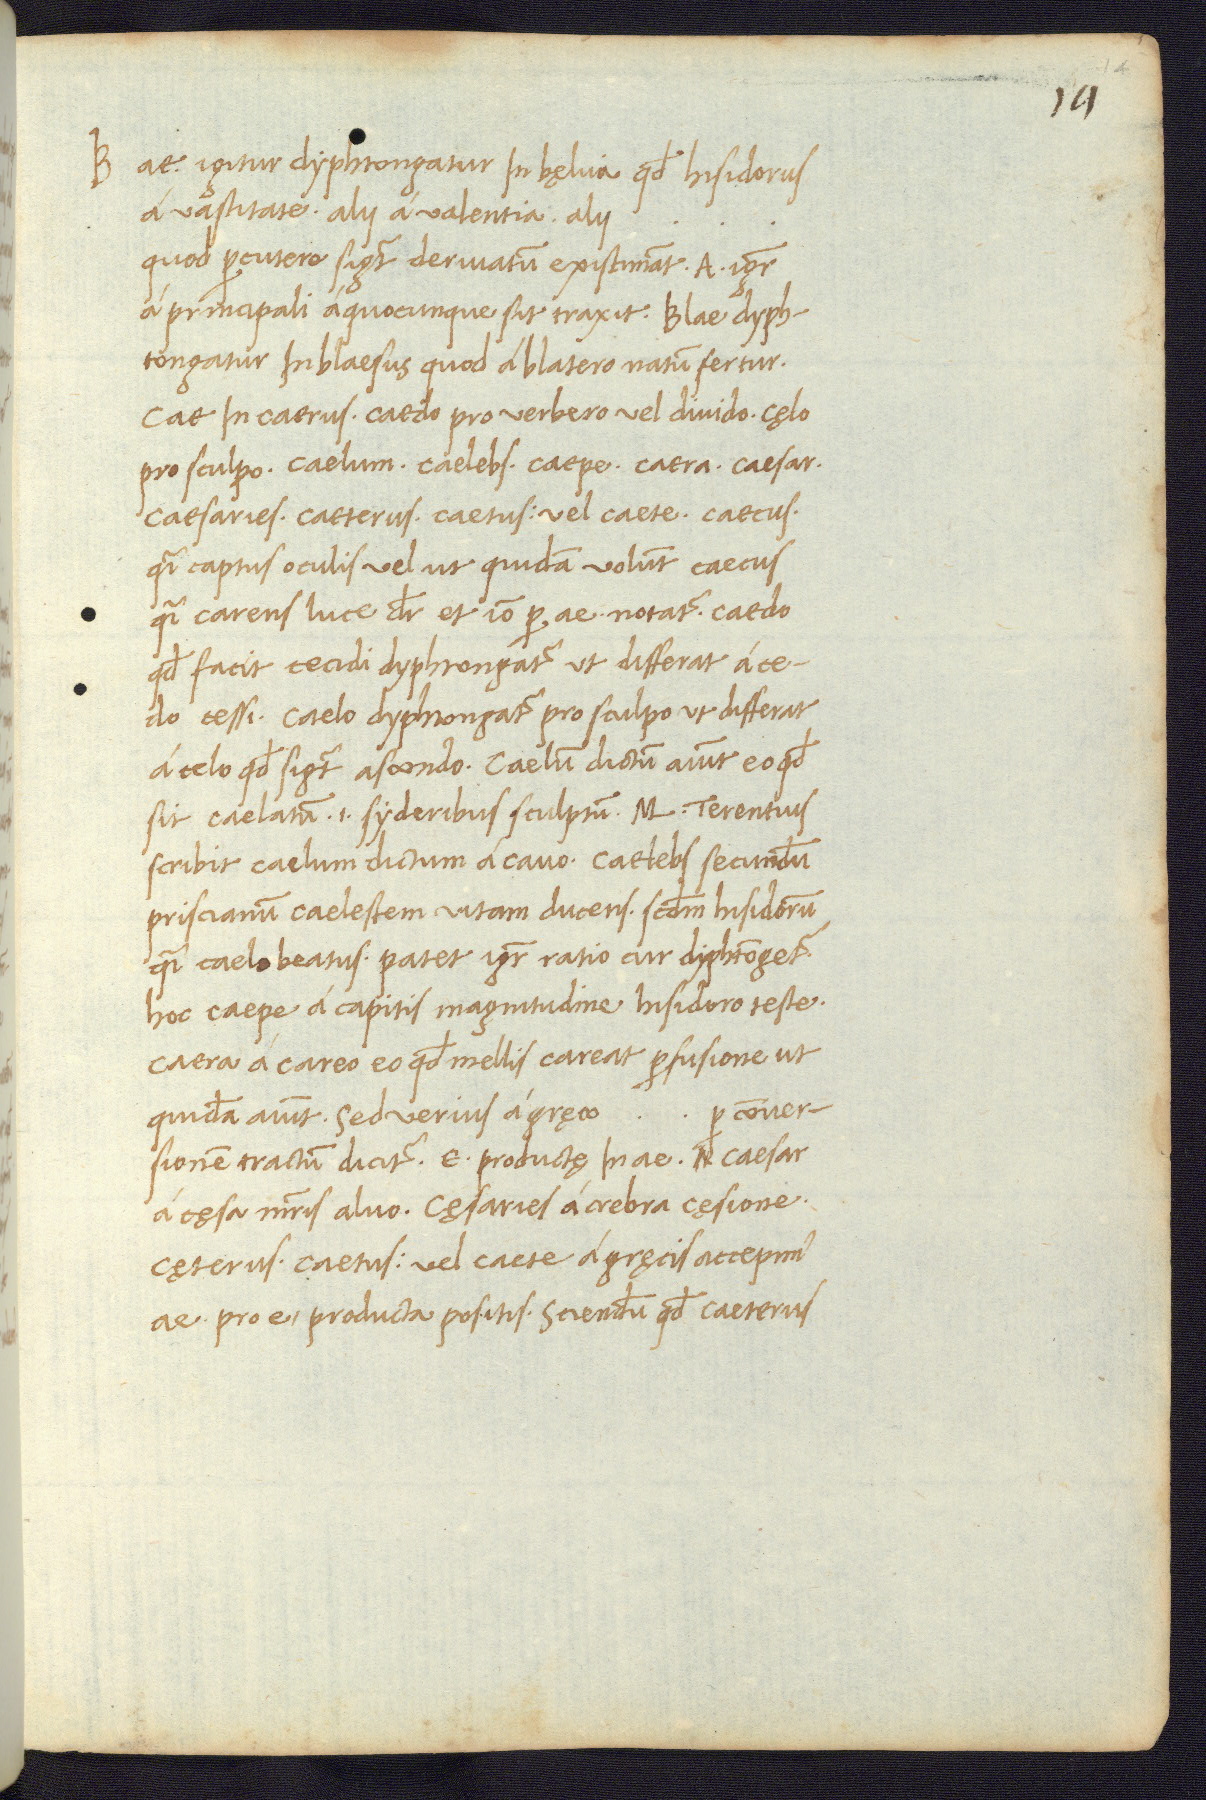 14
14
Bae. igitur dyphtongatur In bęlua qđ hisidorus
á vastitate. alij á valentia. alij . . .
quod ꝑcutere sigt̄ deriuatū existimāt. A. igr̄
á principali áquocunque sit traxit. Blae dyph-
tongatur In blaesus quod á blatero natū fertur.
Cae In caerus. caedo pro verbero vel diuido. cęlo
pro sculpo. caelum. caelebs. caepe. caera. caesar.
caesaries. caeterus. caetus: vel caete. caecus.
qr̄ captus oculis vel ut quidā volūt caecus
qr̄ carens luce dr̄ et iō ꝑ ae. notat᷑. caedo
qđ facit cecidi dyphtongat᷑ vt differat á ce-
do cessi. caelo dyphtongat᷑ pro sculpo vt differat
á celo qđ sigt̄ ascondo. Caelū dictū aiūt eo qđ
sit caelatū .i. syderibus sculptū. M. Terentius
scribit caelum dictum á cauo. Caelebs secundū
priscianū caelestem vitam ducens. scđm hisidorū
qr̄ caelo beatus. patet igr̄ ratio cur dyphtōget᷑.
hoc caepe á capitis magnitudine hisidoro teste.
caera á careo eo qđ mellis careat ꝑfusione ut
quidā aiūt. Sed verius á gręco . . ꝑ cōuer-
sionē tractū dicit᷑. e. productę In ae. N caesar
á cęsa mr̄is aluo. Cęsaries á crebra cęsione.
Cęterus. Caetus: vel caete á gręcis accepim᷒
ae. pro e, producta positis. Sciendū qđ caeterus